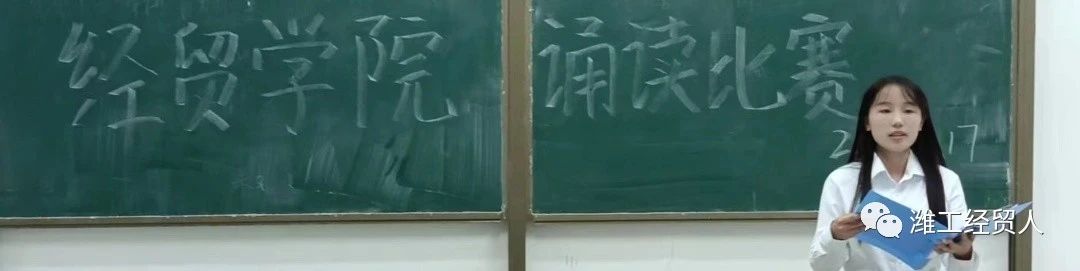 经贸学院 诵读比赛
2 17
潍工经贸人